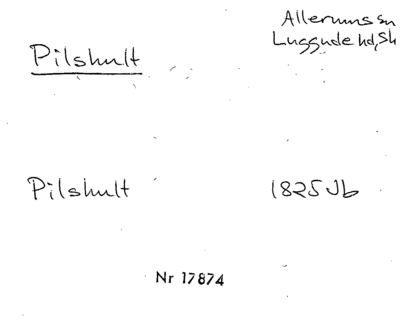 Pilshult
Allerums sn
Luggude hd, Sk
Pilshult
1825 Jb
Nr 17874